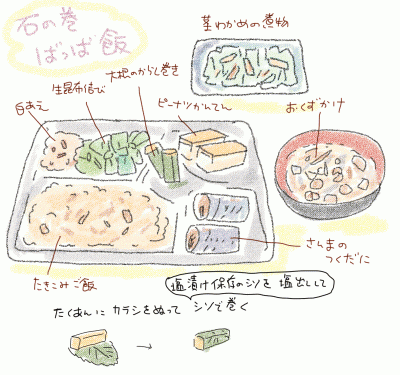 石の巻
ばっぱ飯
茎わかめの煮物
大根のからし巻き
生昆布信び
ピーナツかんてん
おくずかけ
白あえ
さんまの
つくだに
たきこみご飯
塩漬け保存のシソを 塩出しして
たくあんに カラシをぬって シソで巻く